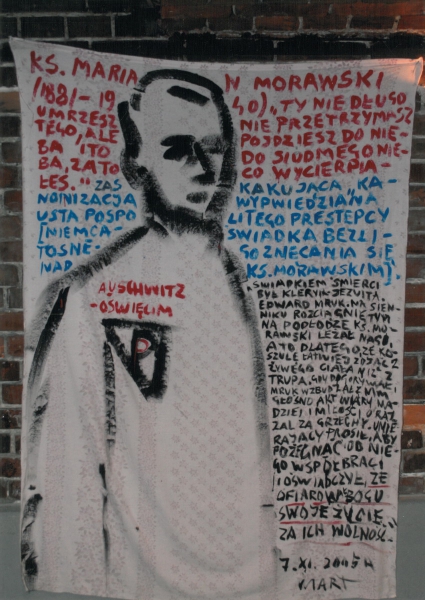 KS. MARIA N MORAWSKI
(1881-19 40), "TY NIE DŁUGO
UMRZESZ NIE PRZETRZYMASZ
TEGO, ALE PÓJDZIESZ DO NIE-
BA I TO DO SIÓDMEGO NIE-
BA, ZA TO CO WYCIERPIA-
ŁEŚ." ZAŚ KAKUJĄCA "KA-
NONIZACJA WYPWIEDZIANA
USTA POSPO LITEGO PRESTĘPCY
[NIEMCA- ŚWIADKA BEZLI-
TOSNE- GO ZNĘCANIA SIĘ
NAD KS. MORAWSKIM].
AUSCHWITZ
-OŚWIĘCIM
P
ŚWIADKIEM ŚMIERCI
BYŁ KLERYK JEZUITA
EDWARD MRUK. NA SIEN-
NIKU ROZCIĄGNIĘTYM
NA PODŁODZE KS. MO-
RAWSKI LEŻAŁ NAGO,
A TO DLATEGO ŻE KO-
SZULĘ ŁATWIEJ ZDJĄĆ Z
ŻYWEGO CIAŁA NIŻ Z
TRUPA. GDY DOGORYWAŁ
MRUK WZBUDZAŁ Z NIM
GŁOŚNO AKT WIARY NA-
DZIEI I MIŁOŚCI, ORAZ
ŻAL ZA GRZECHY. UMIE-
RAJĄCY PROSIŁ, ABY
POŻEGNAĆ OD NIE-
GO WSPÓŁBRACI
I OŚWIADCZYŁ, ŻE
OFIAROWAŁ BOGU
SWOJE ŻYCIE
ZA ICH WOLNOŚĆ."
7. XI. 2005 R